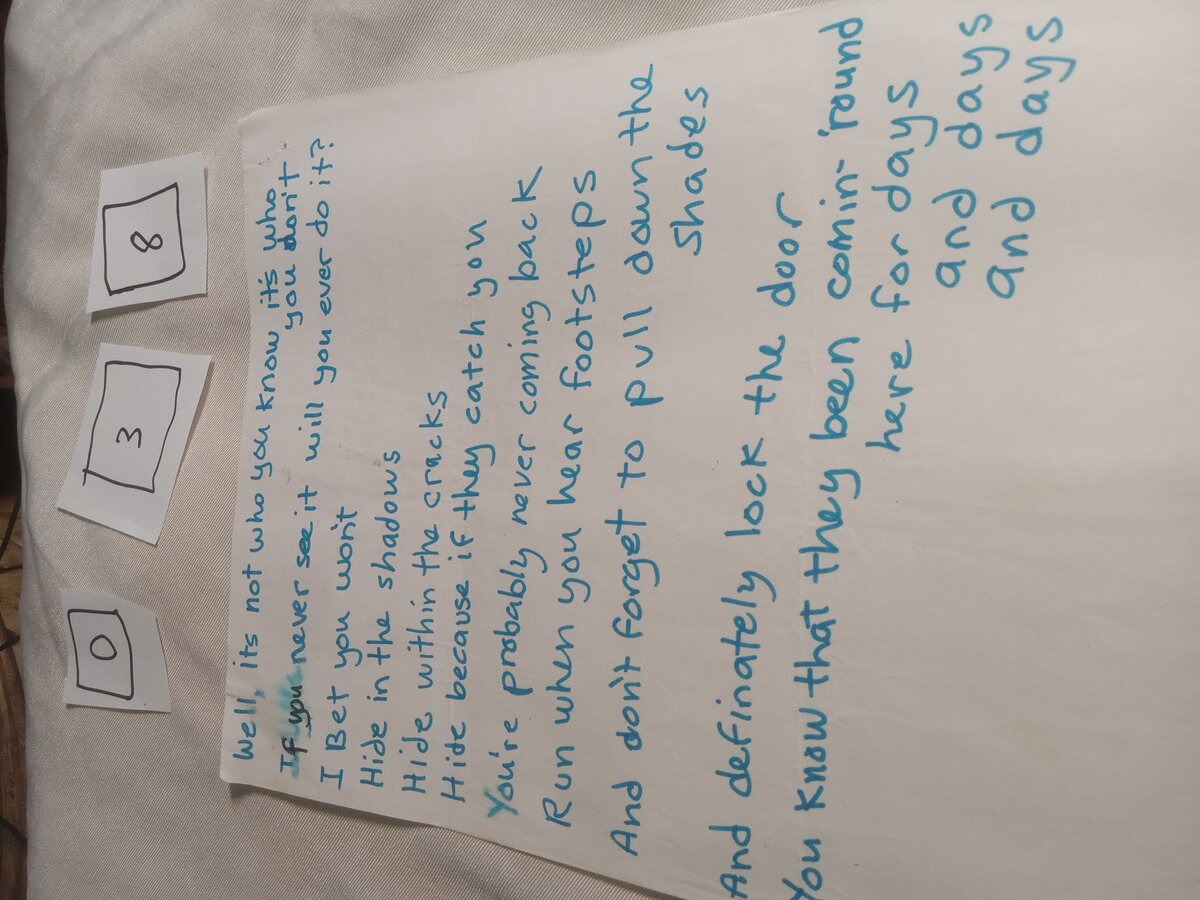 0 3 8
Well, its not who you know it's who
you don't
If you never see it will you ever do it?
I Bet you won't
Hide in the shadows
Hide within the cracks
Hide because if they catch you
You're probably never coming back
Run when you hear footsteps
And don't forget to pull down the
shades
And definately lock the door
You know that they been comin- 'round
here for days
and days
and days